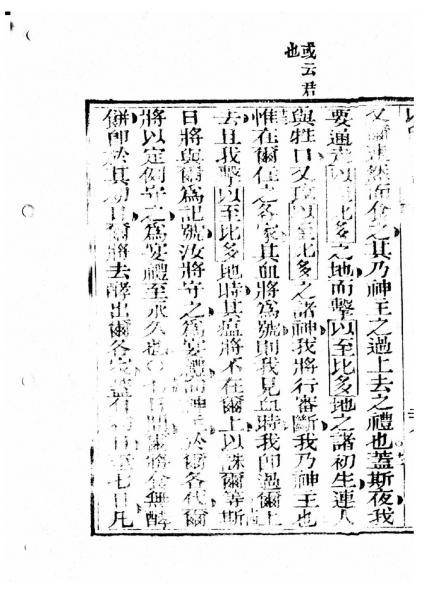 或云君
也
又爾速然而食之其乃神王之過上去之禮也蓋斯夜我
要通走以至比多之地而擊以至比多地之諸初生連人
與牲口又以至比多之諸神我將行審斷我乃神王也
惟在爾住之各家其血將爲號則我見血時我即過爾上
去且我擊以至比多地時其瘟將不在爾上以誅爾等斯
日將與爾爲記號汝將守之爲宴禮與神王於爾各代爾
將以定例守之爲宴禮至永久也○七日間爾將食無酵
餅即於其初日爾將去酵出爾各家蓋初日至七日凡